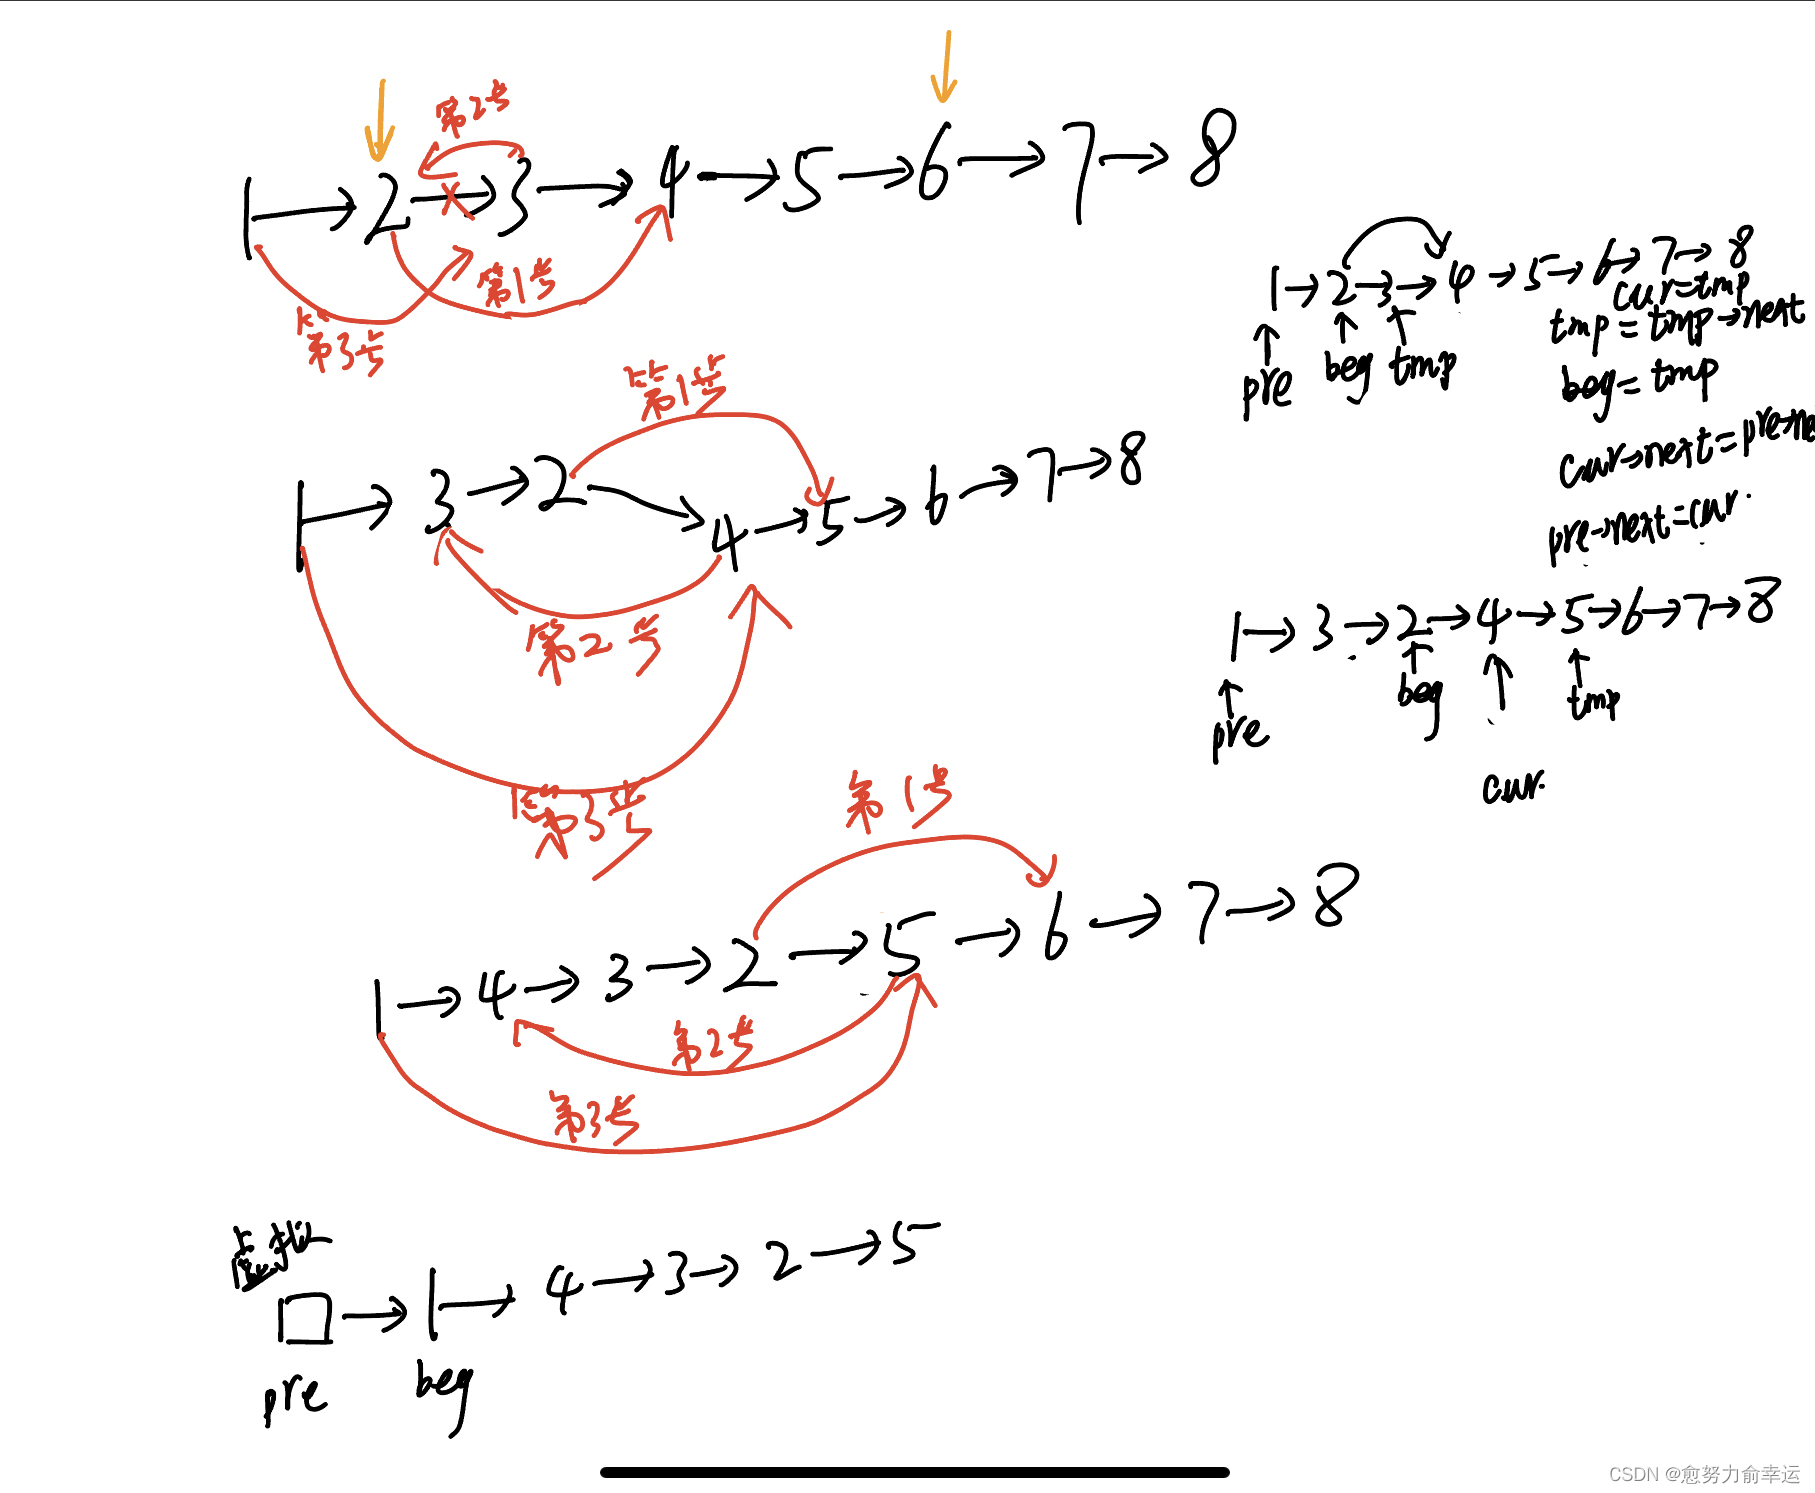 第2号
1 → 2 → 3 → 4 → 5 → 6 → 7 → 8
第1号
第3号
第1号
1 → 3 → 2 → 4 → 5 → 6 → 7 → 8
第2号
第3号
第1号
1 → 4 → 3 → 2 → 5 → 6 → 7 → 8
第2号
第3号
□ → 1 → 4 → 3 → 2 → 5
pre beg
1 → 2 → 3 → 4 → 5 → 6 → 7 → 8
pre beg tmp
cur=tmp
tmp = tmp→next
beg= tmp
cur→next=pre→ne
pre→next=cur
1 → 3 → 2 → 4 → 5 → 6 → 7 → 8
pre beg tmp
cur
CSDN @愈努力俞幸运